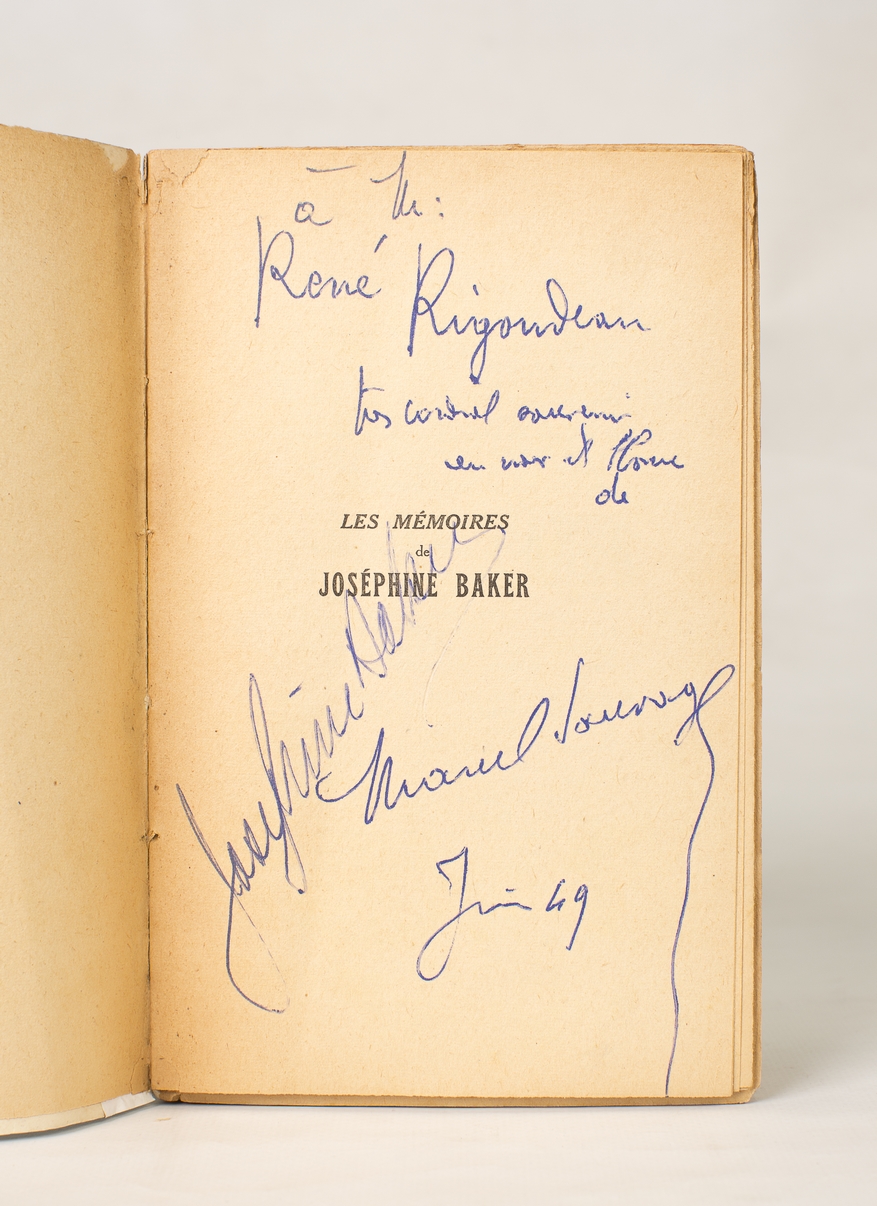 à Mr:
René Rigoudeau
très cordial souvenir
en noir et
de
LES MÉMOIRES
de
JOSÉPHINE BAKER
Joséphine Baker
Marcel Sauvage
Juin 49